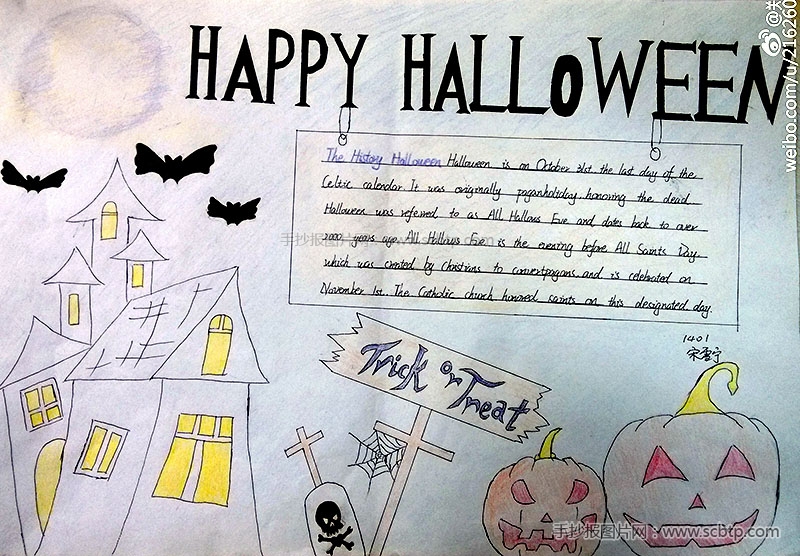 HAPPY HALLOWEEN
The History Halloween Halloween is on October 31st. the last day of the
Celtic calendar. It was originally paganholiday. honoring the dead.
Halloween was referred to as All Hallows Eve and dates back to over
2000 years ago. All Hallows Eve is the evening before All Saints Day.
which was created by Christians to convertpagans. and is celebrated on
November 1st. The Catholic church honored saints on this designated day.
1401
Trick or Treat
手抄报图片网:www.scbtp.com
手抄报图片网:www.scbtp.com
weibo.com/u/216260